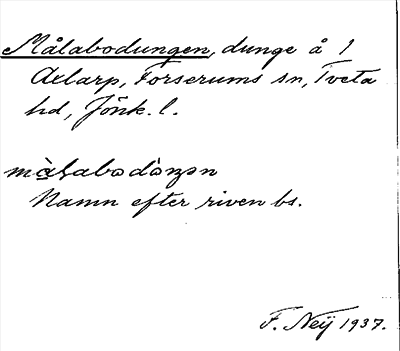 Målabodungen, dunge å 1
Axlarp, Forserums sn, Tveta
hd, Jönk. l.
mà̀ḷabodȯŋən
Namn efter riven bs.
F. Neij 1937.